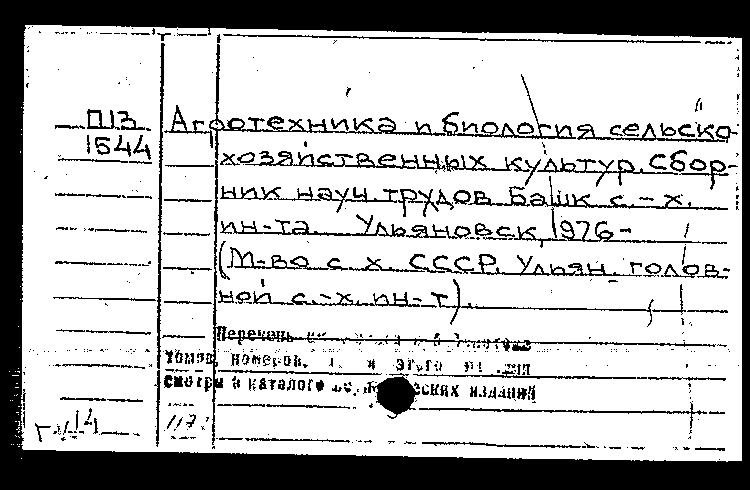 П13 Агротехника и биология сельско-
1544 хозяйственных культур. Сбор-
ник науч. трудов Башк с.-х.
ин-та. Ульяновск, 1976-
(М-во с. х. СССР. Ульян. голов-
ной с.-х. ин-т).
Перечень
томов, номеров, этого
смотри в каталоге издания